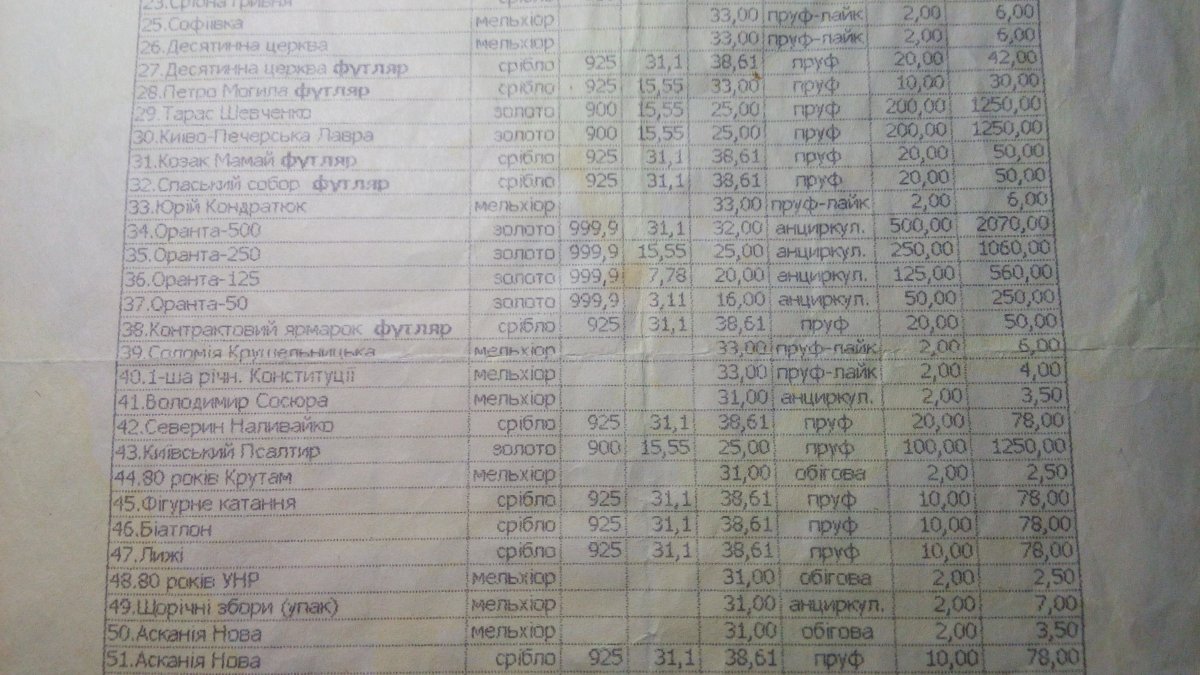 23.Срібна гривня
25.Софіївка мельхіор 33,00 пруф-лайк 2,00 6,00
26.Десятинна церква мельхіор 33,00 пруф-лайк 2,00 6,00
27.Десятинна церква футляр срібло 925 31,1 38,61 пруф 20,00 42,00
28.Петро Могила футляр срібло 925 15,55 33,00 пруф 10,00 30,00
29.Тарас Шевченко золото 900 15,55 25,00 пруф 200,00 1250,00
30.Києво-Печерська Лавра золото 900 15,55 25,00 пруф 200,00 1250,00
31.Козак Мамай футляр срібло 925 31,1 38,61 пруф 20,00 50,00
32.Спаський собор футляр срібло 925 31,1 38,61 пруф 20,00 50,00
33.Юрій Кондратюк мельхіор 33,00 пруф-лайк 2,00 6,00
34.Оранта-500 золото 999,9 31,1 32,00 анциркул. 500,00 2070,00
35.Оранта-250 золото 999,9 15,55 25,00 анциркул. 250,00 1060,00
36.Оранта-125 золото 999,9 7,78 20,00 анциркул. 125,00 560,00
37.Оранта-50 золото 999,9 3,11 16,00 анциркул. 50,00 250,00
38.Контрактовий ярмарок футляр срібло 925 31,1 38,61 пруф 20,00 50,00
39.Соломія Крушельницька мельхіор 33,00 пруф-лайк 2,00 6,00
40.1-ша річн. Конституції мельхіор 33,00 пруф-лайк 2,00 4,00
41.Володимир Сосюра мельхіор 31,00 анциркул. 2,00 3,50
42.Северин Наливайко срібло 925 31,1 38,61 пруф 20,00 78,00
43.Київський Псалтир золото 900 15,55 25,00 пруф 100,00 1250,00
44.80 років Крутам мельхіор 31,00 обігова 2,00 2,50
45.Фігурне катання срібло 925 31,1 38,61 пруф 10,00 78,00
46.Біатлон срібло 925 31,1 38,61 пруф 10,00 78,00
47.Лижі срібло 925 31,1 38,61 пруф 10,00 78,00
48.80 років УНР мельхіор 31,00 обігова 2,00 2,50
49.Щорічні збори (упак) мельхіор 31,00 анциркул. 2,00 7,00
50.Асканія Нова мельхіор 31,00 обігова 2,00 3,50
51.Асканія Нова срібло 925 31,1 38,61 пруф 10,00 78,00